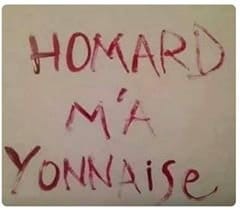 HOMARD
M'A
YONNAiSe